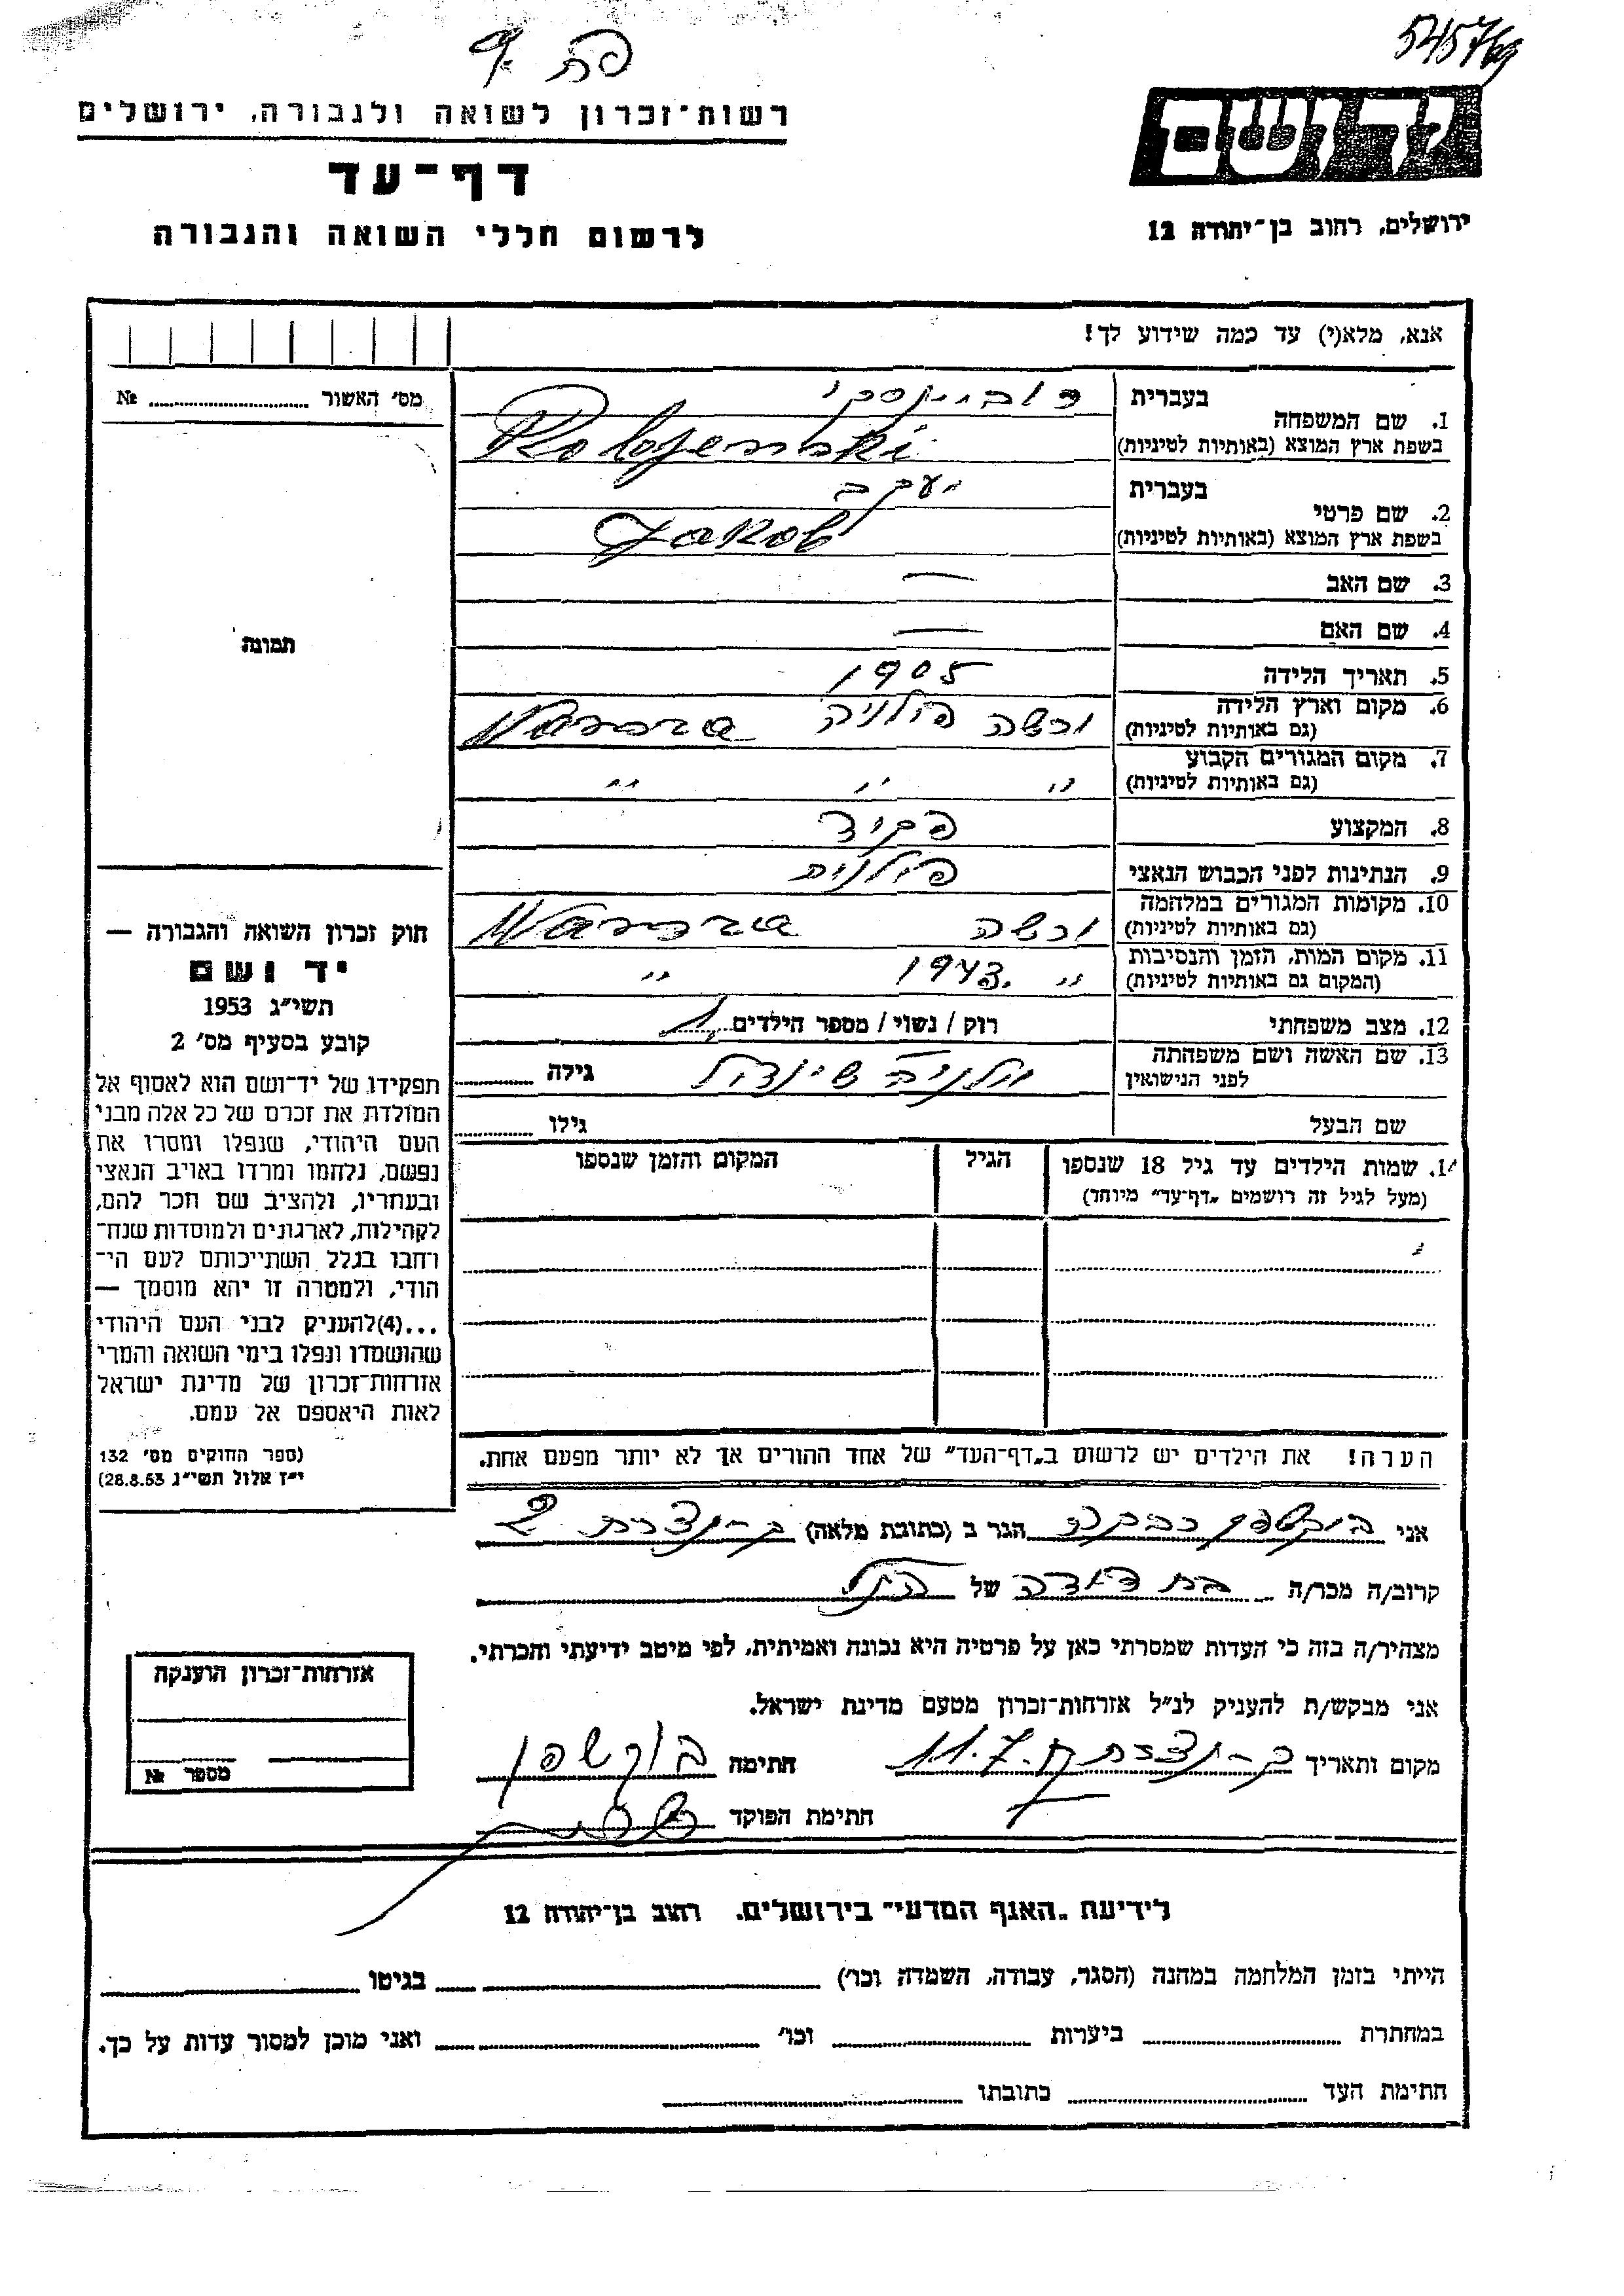 545769
פת ק
רשות־זכרון לשואה ולגבורה, ירושלים
דף־עד
לרשום חללי השואה והגבורה
יד ושם
ירושלים, רחוב בן־יהודה 12
אנא, מלא(י) עד כמה שידוע לך!
מס' האשור № 
תמונה
חוק זכרון השואה והגבורה —
יד ושם
תשי"ג 1953
קובע בסעיף מס' 2
תפקידו של יד־ושם הוא לאסוף אל
המולדת את זכרם של כל אלה מבני
העם היהודי, שנפלו ומסרו את
נפשם, נלחמו ומרדו באויב הנאצי
ובעוזריו, ולהציב שם וזכר להם,
לקהילות, לארגונים ולמוסדות שנח־
רבו בגלל השתייכותם לעם הי־
הודי, ולמטרה זו יהא מוסמך —
...(4)להעניק לבני העם היהודי
שהושמדו ונפלו בימי השואה והמרי
אזרחות־זכרון של מדינת ישראל
לאות היאספם אל עמם.
(ספר החוקים מס' 132
י"ז אלול תשי"ג 28.8.53)
1. שם המשפחה בעברית
בשפת ארץ המוצא (באותיות לטיניות)
2. שם פרטי בעברית יעקב
בשפת ארץ המוצא (באותיות לטיניות) Jakob
3. שם האב —
4. שם האם —
5. תאריך הלידה 1905
6. מקום וארץ הלידה (גם באותיות לטיניות) ורשה פולניה
7. מקום המגורים הקבוע (גם באותיות לטיניות) " " "
8. המקצוע פקיד
9. הנתינות לפני הכבוש הנאצי פולנית
10. מקומות המגורים במלחמה (גם באותיות לטיניות) ורשה
11. מקום המות, הזמן והנסיבות (המקום גם באותיות לטיניות) " 1943. "
12. מצב משפחתי רוק / נשוי / מספר הילדים 1
13. שם האשה ושם משפחתה לפני הנישואין גילה
שם הבעל גילו
14. שמות הילדים עד גיל 18 שנספו (מעל לגיל זה רושמים "דף־עד" מיוחד) הגיל המקום והזמן שנספו
הערה! את הילדים יש לרשום ב"דף־העד" של אחד ההורים אך לא יותר מפעם אחת.
אני בוקשפן רבקה הגר ב (כתובת מלאה) ק-נצרת
קרוב/ה מכר/ה בת דודה של הנ"ל
מצהיר/ה בזה כי העדות שמסרתי כאן על פרטיה היא נכונה ואמיתית, לפי מיטב ידיעתי והכרתי.
אני מבקש/ת להעניק לנ"ל אזרחות־זכרון מטעם מדינת ישראל.
מקום ותאריך ק-נצרת 11.7 חתימה בוקשפן
חתימת הפוקד
אזרחות־זכרון הוענקה
מספר №
לידיעת "האגף המדעי" בירושלים, רחוב בן־יהודה 12
הייתי בזמן המלחמה במחנה (הסגר, עבודה, השמדה וכו') בגיטו
במחתרת ביערות וכו' ואני מוכן למסור עדות על כך.
חתימת העד כתובתו